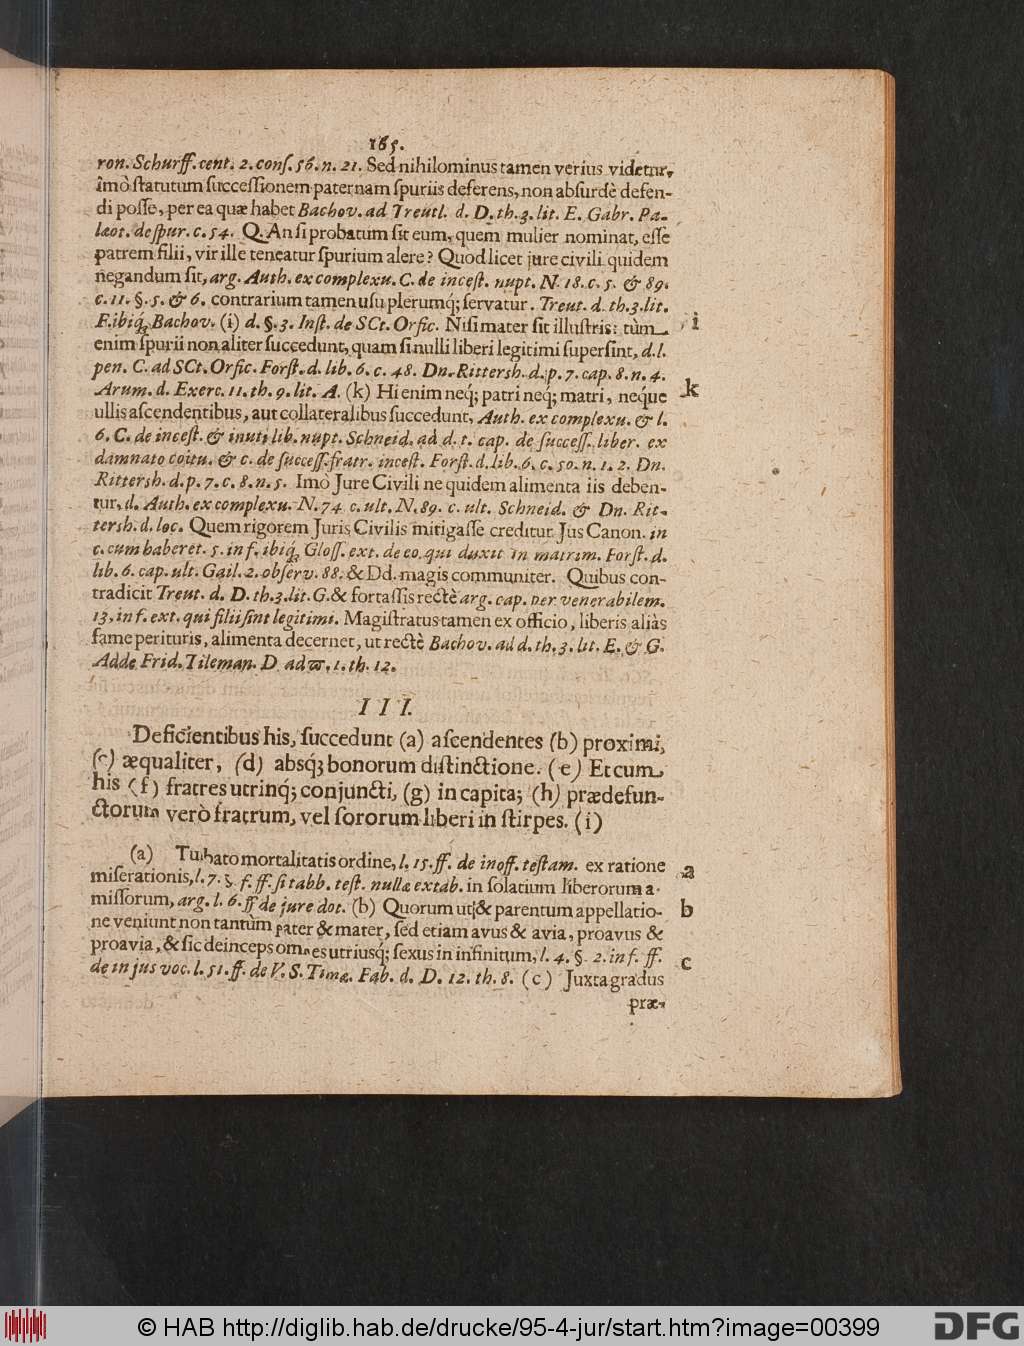 165.
ron. Schurff. cent. 2. conſ. 56. n. 21. Sed nihilominus tamen verius videtur,
imò ſtatutum ſucceſſionem paternam ſpuriis deferens, non abſurdè defen-
di poſſe, per ea quæ habet Bachov. ad Treutl. d. D. th. 3. lit. E. Gabr. Pa-
læot. de ſpur. c. 54. Q. An ſi probatum ſit eum, quem mulier nominat, eſſe
patrem filii, vir ille teneatur ſpurium alere? Quod licet jure civili quidem
negandum ſit, arg. Auth. ex complexu. C. de inceſt. nupt. N. 18. c. 5. & 89.
c. 11. §. 5. & 6. contrarium tamen uſu plerumq; ſervatur. Treut. d. th. 3. lit.
F. ibiq; Bachov. (i) d. §. 3. Inſt. de SCt. Orfic. Niſi mater ſit illuſtris: tùm i
enim ſpurii non aliter ſuccedunt, quam ſi nulli liberi legitimi ſuperſint, d. l.
pen. C. ad SCt. Orfic. Forſt. d. lib. 6. c. 48. Dn. Rittersh. d. p. 7. cap. 8. n. 4.
Arum. d. Exerc. 11. th. 9. lit. A. (k) Hi enim neq; patri neq; matri, neque k
ullis aſcendentibus, aut collateralibus ſuccedunt, Auth. ex complexu. & l.
6. C. de inceſt. & inutilib. nupt. Schneid. ad d. t. cap. de ſucceſſ. liber. ex
damnato coitu. & c. de ſucceſſ. fratr. inceſt. Forſt. d. lib. 6. c. 50. n. 1. 2. Dn.
Rittersh. d. p. 7. c. 8. n. 5. Imò Jure Civili ne quidem alimenta iis deben-
tur, d. Auth. ex complexu. N. 74. c. ult. N. 89. c. ult. Schneid. & Dn. Rit-
tersh. d. loc. Quem rigorem Juris Civilis mitigaſſe creditur Jus Canon. in
c. cum haberet. 5. in f. ibiq; Gloſſ. ext. de eo. qui duxit in matrim. Forſt. d.
lib. 6. cap. ult. Gail. 2. obſerv. 88. & Dd. magis communiter. Quibus con-
tradicit Treut. d. D. th. 3. lit. G. & fortaſſis rectè arg. cap. per venerabilem.
13. in f. ext. qui filii ſint legitimi. Magiſtratus tamen ex officio, liberis aliàs
fame perituris, alimenta decernet, ut rectè Bachov. ad d. th. 3. lit. E. & G.
Adde Frid. Tileman. D. ad ϖ. 1. th. 12.
III.
Deficientibus his, ſuccedunt (a) aſcendentes (b) proximi,
(c) æqualiter, (d) absq; bonorum diſtinctione. (e) Et cum
his (f) fratres utrinq; conjuncti, (g) in capita; (h) prædefun-
ctorum verò fratrum, vel ſororum liberi in ſtirpes. (i)
(a) Turbato mortalitatis ordine, l. 15. ff. de inoff. teſtam. ex ratione a
miſerationis, l. 7. §. f. ff. ſi tabb. teſt. nullæ extab. in ſolatium liberorum a-
miſſorum, arg. l. 6. ff de jure dot. (b) Quorum uti & parentum appellatio- b
ne veniunt non tantùm pater & mater, ſed etiam avus & avia, proavus &
proavia, & ſic deinceps omnes utriusq; ſexus in infinitum, l. 4. §. 2. in f. ff.
de in jus voc. l. 51. ff. de V. S. Timæ. Fab. d. D. 12. th. 8. (c) Juxta gradus c
præ-
© HAB http://diglib.hab.de/drucke/95-4-jur/start.htm?image=00399
DFG